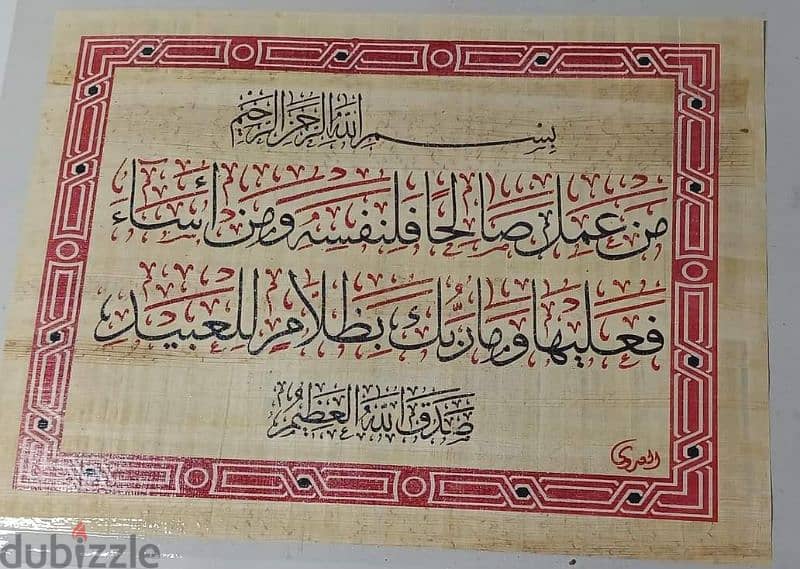 بِسْمِ اللَّهِ الرَّحْمَنِ الرَّحِيمِ
مَنْ عَمِلَ صَالِحًا فَلِنَفْسِهِ وَمَنْ أَسَاءَ
فَعَلَيْهَا وَمَا رَبُّكَ بِظَلَّامٍ لِلْعَبِيدِ
صَدَقَ اللَّهُ الْعَظِيمُ
dubizzle